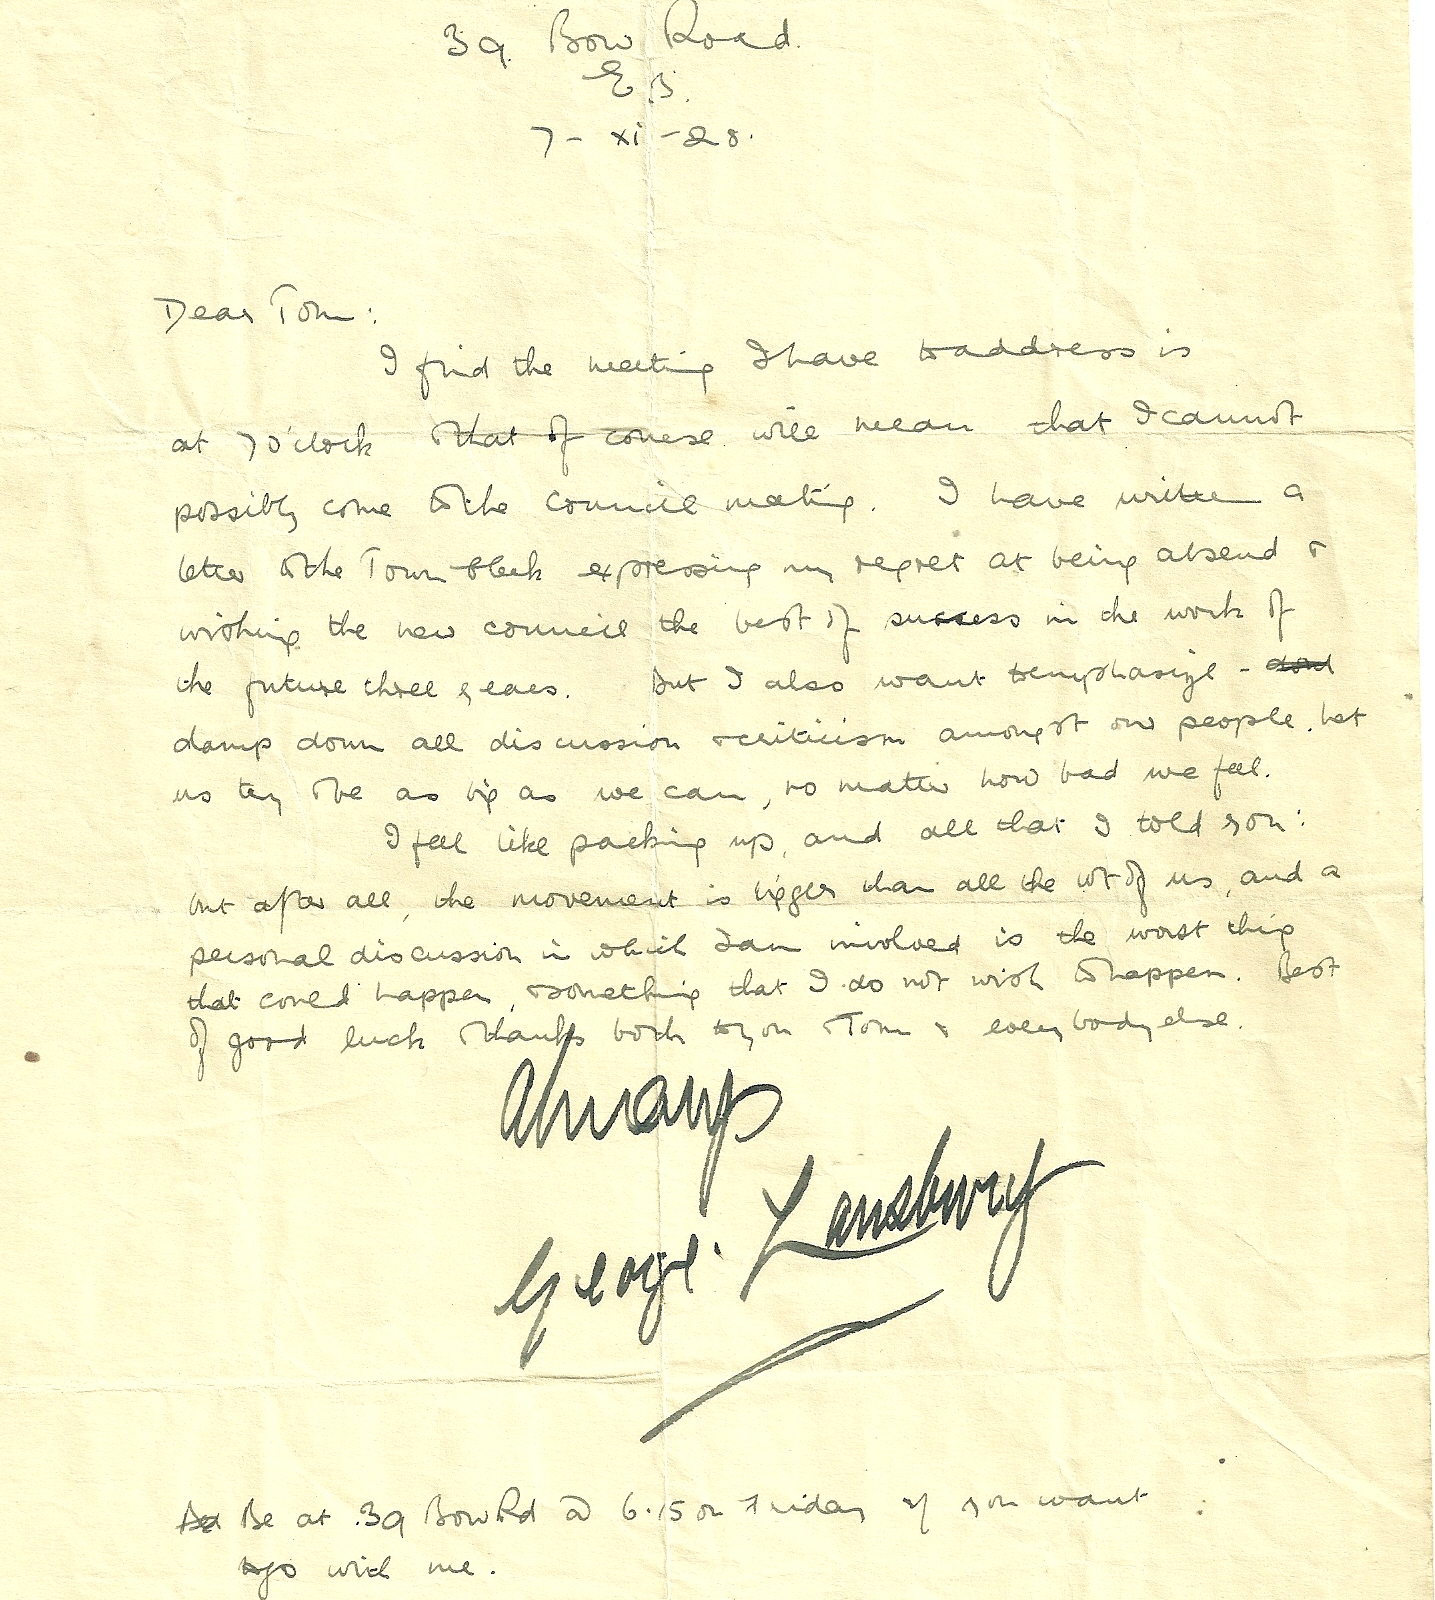 39 Bow Road.
E.3.
7 - xi - 28.
Dear Tom:
I find the meeting I have to address is
at 7 o'clock & that of course will mean that I cannot
possibly come to the council meeting. I have written a
letter to the Town Clerk expressing my regret at being absend &
wishing the new council the best of success in the work of
the future three years. But I also want to emphasize - dont
damp down all discussion & criticism amongst our people. Let
us try to be as big as we can, no matter how bad we feel.
I feel like packing up, and all that I told you:
but after all, the movement is bigger than all the lot of us, and a
personal discussion in which I am involved is the worst thing
that could happen, & something that I do not wish to happen. Best
of good luck & thanks both to you & Tom & everybody else.
Always
George Lansbury
Be at 39 Bow Rd @ 6.15 on Friday if you want
to go with me.